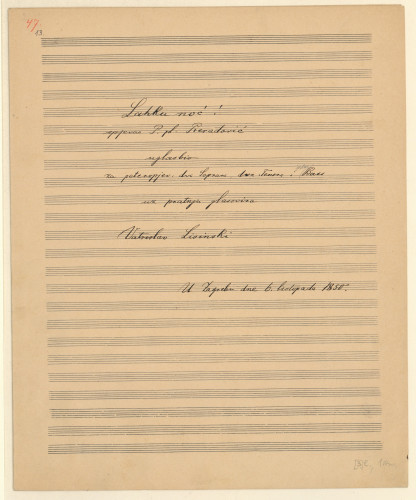 47
Lahku noć!
spjevao P. pl. Preradović
uglasbio
za peteropjev. dvi Soprani, dva Tenora i Bass
uz pratnju glasovira
Vatroslav Lisinski
U Zagrebu dne 6. listopada 1850.